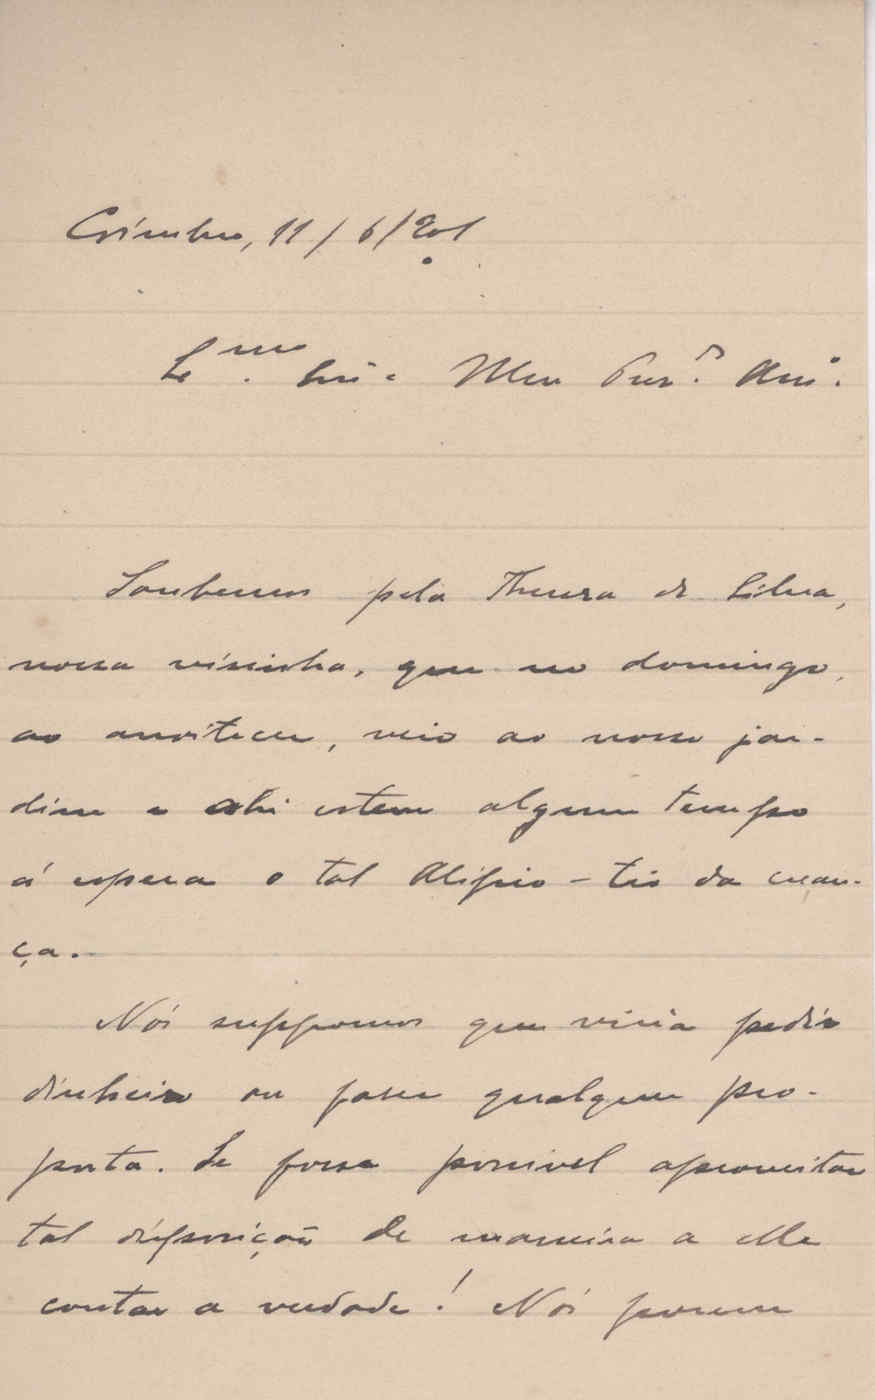 Coimbra, 11/6/901
Meu Am.º
Soubemos pela Thereza da Silva,
nossa visinha, que no domingo,
ao anoitecer, veio ao nosso jar-
dim e ahi esteve algum tempo
á espera o tal Alipio - tio da crean-
ça.
Nós suppomos que viria pedir
dinheiro ou fazer qualquer pro-
posta. Se fosse possivel aproveitar
tal disposição de maneira a elle
contar a verdade! Nós porem